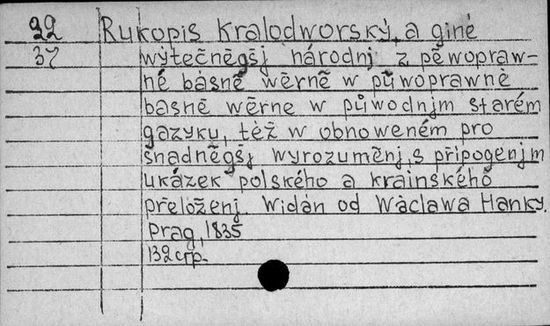 22 Rukopis Kralodworský, a giné
37 wýtečněgšj národnj z pěwopraw-
né básně wěrně w půwoprawné
basně wěrne w půwodnjm starém
gazyku, též w obnoweném pro
snadněgšj wyrozuměnj, s připogenjm
ukázek polského a krainského
přeloženj. Widán od Wáclawa Hanky.
Prag, 1835
132 стр.